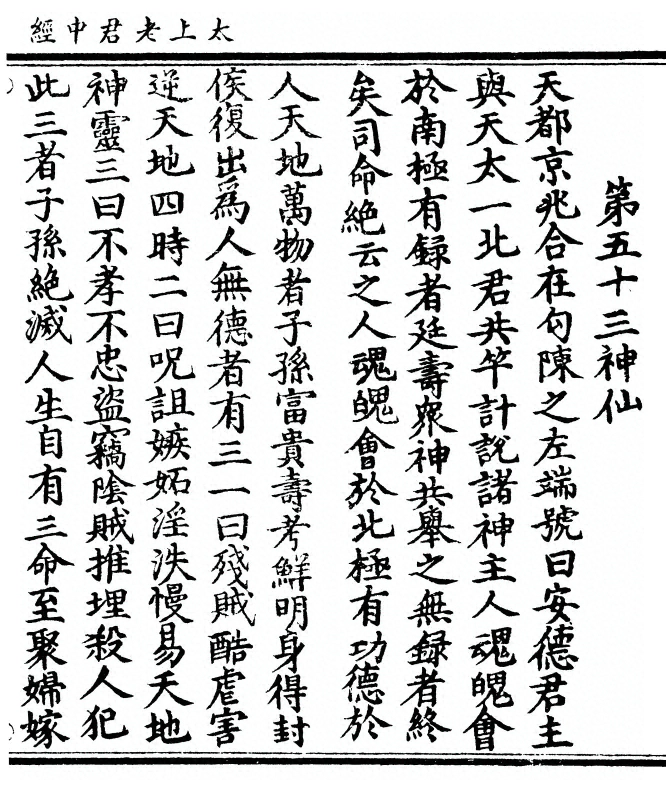 太上老君中經
第五十三神仙
天都京兆合在勾陳之左端號曰安德君主
與天太一北君共竿計說諸神主人魂魄會
於南極有録者延壽衆神共舉之無録者終
矣司命絶云之人魂魄會於北極有功德於
人天地萬物者子孫富貴壽考鮮明身得封
侯復出爲人無德者有三一曰殘賊酷虐害
逆天地四時二曰呪詛嫉妬淫泆慢易天地
神靈三曰不孝不忠盜竊陰賊推埋殺人犯
此三者子孫絶滅人生自有三命至聚婦嫁